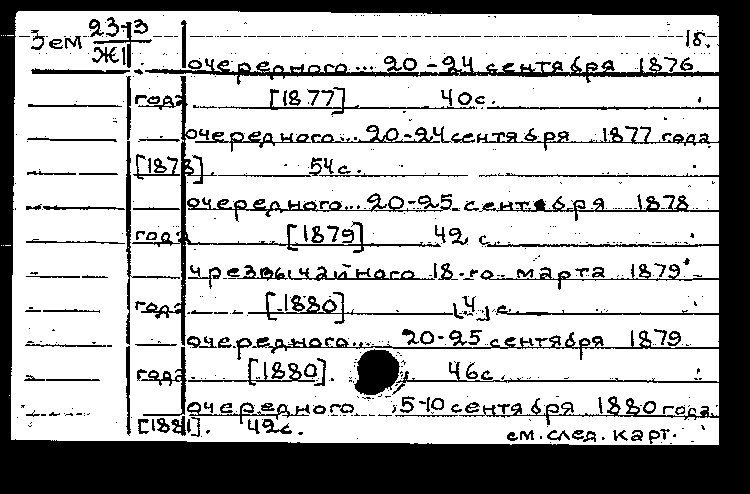 Зем 23-3 18.
Ж1
очередного... 20-24 сентября 1876
года [1877] 40с.
очередного... 20-24 сентября 1877 года
[1878]. 54с.
очередного... 20-25 сентября 1878
года [1879] 42 с.
чрезвычайного 18-го марта 1879
года [1880] [4] с.
очередного... 20-25 сентября 1879
года [1880]. 46с
очередного 5-10 сентября 1880 года
[1881]. 42с.
см. след. карт.